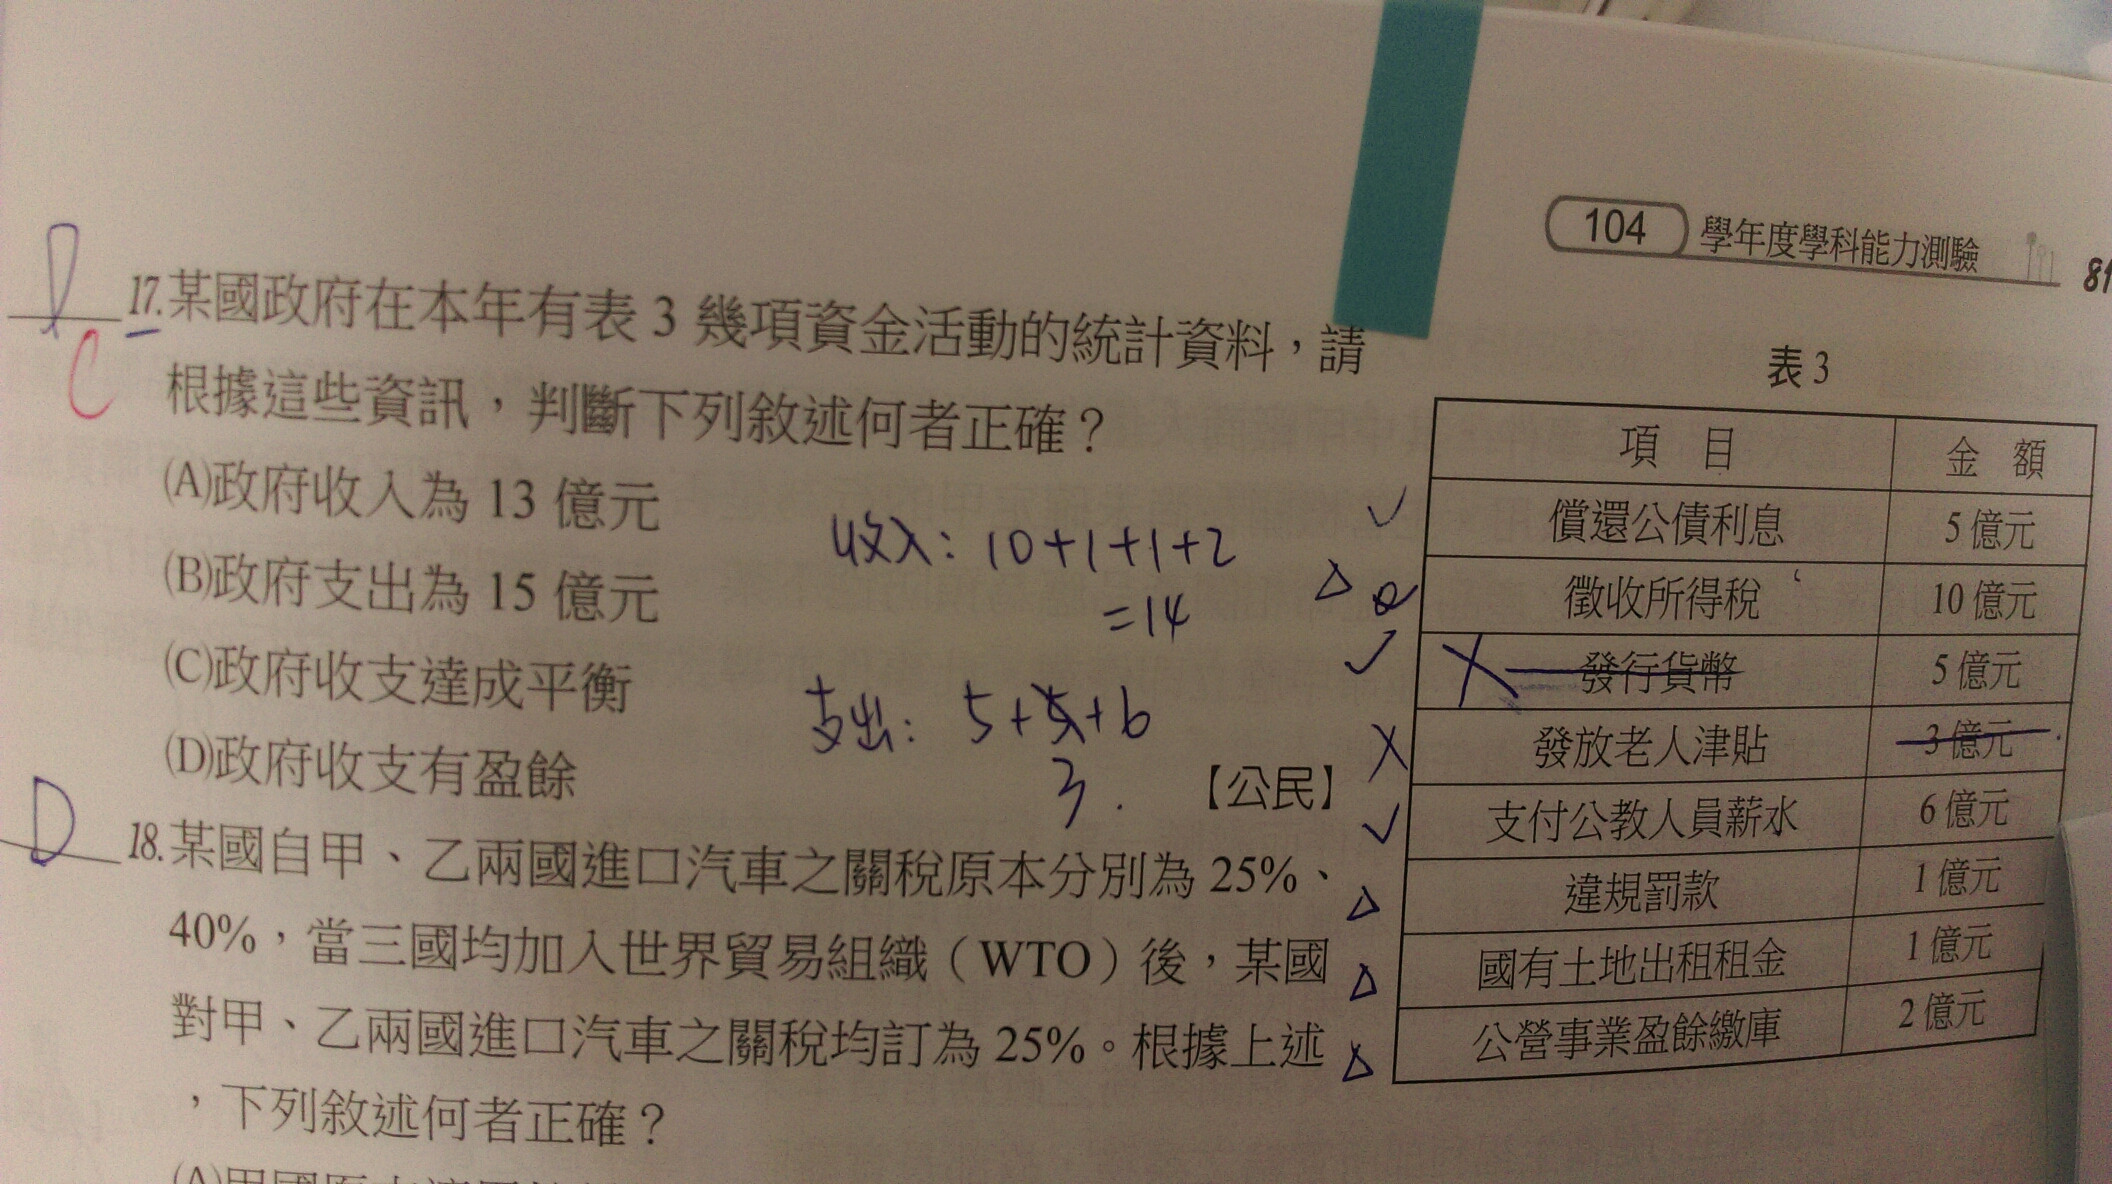 104 學年度學科能力測驗 81
D
C
17.某國政府在本年有表 3 幾項資金活動的統計資料，請
根據這些資訊，判斷下列敘述何者正確？
(A)政府收入為 13 億元
(B)政府支出為 15 億元
(C)政府收支達成平衡
(D)政府收支有盈餘
【公民】
收入：10+1+1+2
=14
支出：5+5+6
3
表 3
項 目 金 額
償還公債利息 5 億元
徵收所得稅 10 億元
發行貨幣 5 億元
發放老人津貼 3 億元
支付公教人員薪水 6 億元
違規罰款 1 億元
國有土地出租租金 1 億元
公營事業盈餘繳庫 2 億元
D
18.某國自甲、乙兩國進口汽車之關稅原本分別為 25%、
40%，當三國均加入世界貿易組織（WTO）後，某國
對甲、乙兩國進口汽車之關稅均訂為 25%。根據上述
，下列敘述何者正確？